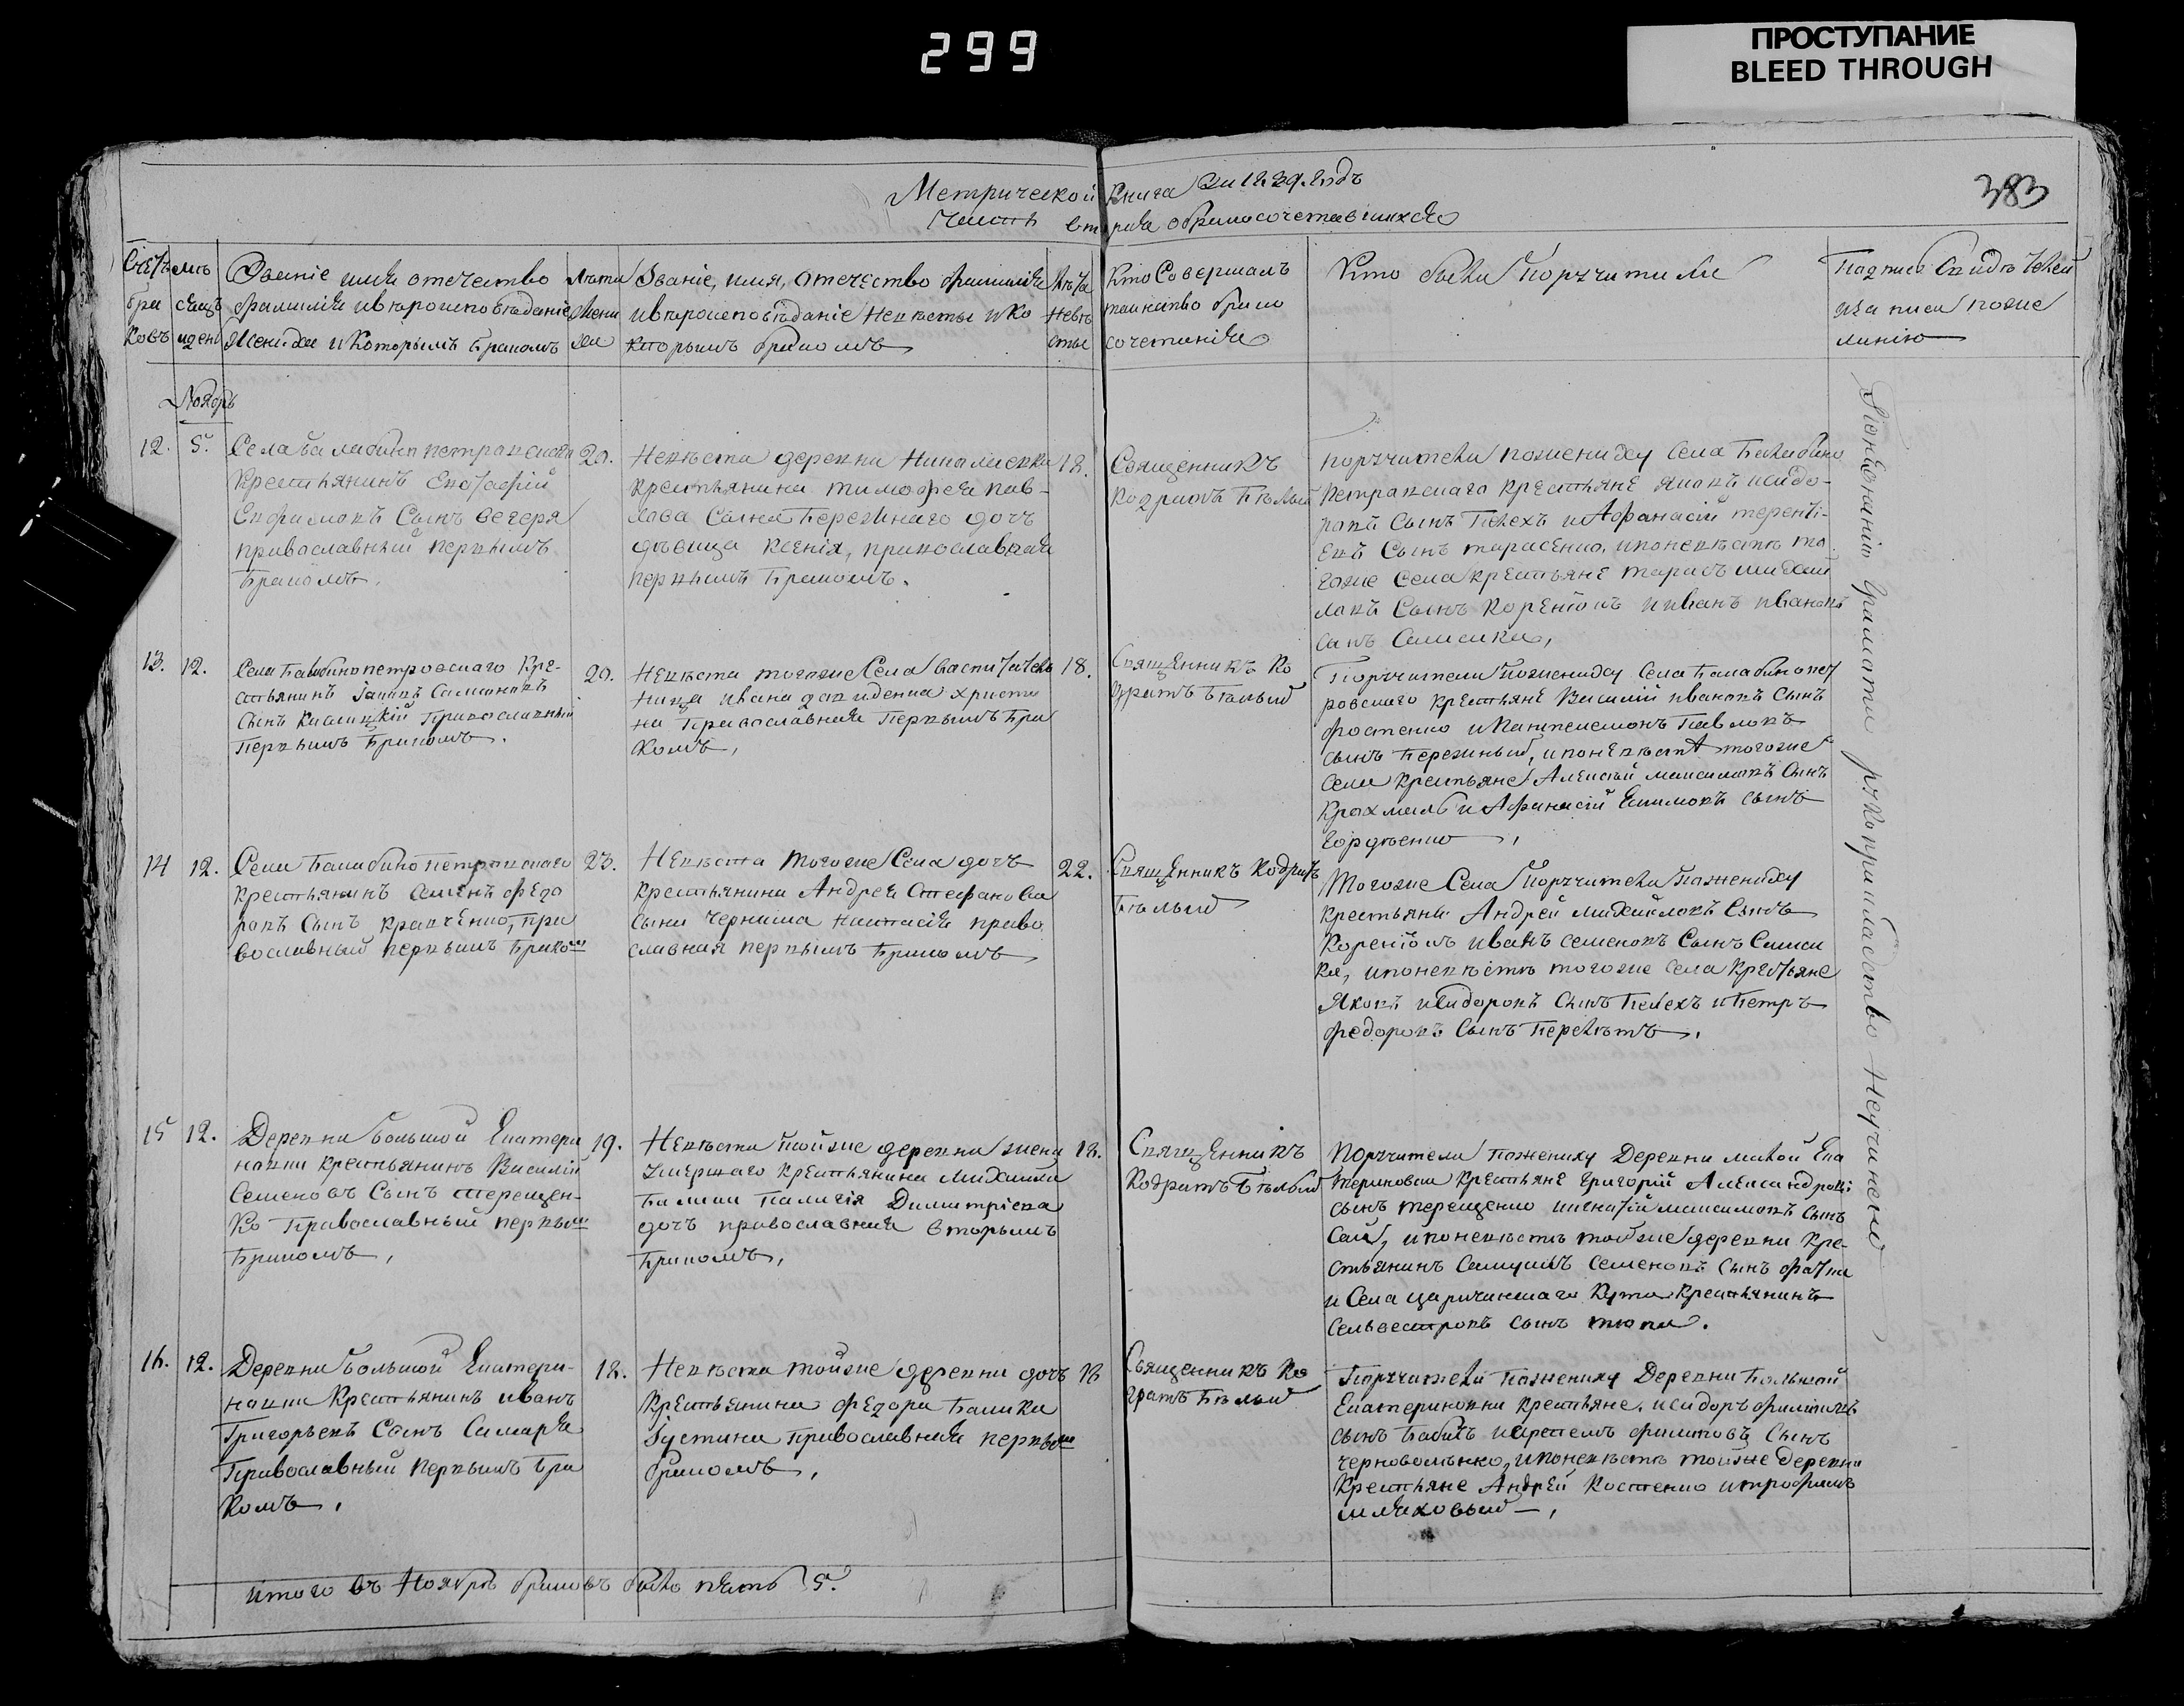 299
ПРОСТУПАНИЕ
BLEED THROUGH
383
Метрической Книга на 1839. годъ
Часть вторая о бракосочетавшихся
Счетъ браковъ
месяцъ и день
Званіе имя отечество
фамилія и вѣроисповѣданіе
Жениха и Которымъ бракомъ
Лѣта Жениха
Званіе, имя, отечество фамилія
и вѣроисповѣданіе Невѣсты и Ко
которымъ бракомъ
Лѣта Невѣсты
Кто Совершалъ
таинство брако
сочетанія
Кто были поручители
Подпись Свидѣтелей
записи по же
ланію
Ноябрь
12. 5.
Села Балабино петровскаго
Крестьянинъ
сынъ вечеря
православный первымъ
бракомъ.
20.
Невѣста деревни Николаевки
Крестьянина тимофея пав-
лова сына Бережнаго дочь
дѣвица Ксенія, православная
первымъ бракомъ.
18.
Священникъ
Кодратъ Бѣлый
поручители по жениху Села Балабино
петровскаго крестьяне яковъ исидо-
ровъ сынъ Пелехъ и Афанасій теренті-
евъ сынъ тарасенко, и по невѣстѣ то
гоже Села крестьяне тарасъ михай
ловъ сынъ и иванъ ивановъ
сынъ
13. 12.
Села Балабинопетровскаго Кре-
стьянинъ
сынъ Православный
первымъ бракомъ.
20.
Невѣста тогоже Села
ивана давиденка христи
на православная первымъ бра
комъ,
18.
Священникъ Ко
дратъ Бѣлый
Поручители по жениху Села Балабинопет
ровскаго крестьяне Василій ивановъ сынъ
фостенко и Пантелемонъ Павловъ
сынъ Бережный, и по невѣстѣ тогоже
села крестьяне Алексѣй максимовъ сынъ
Крохмаль и Афанасій Екимовъ сынъ
Гордѣенко,
14 12.
Села Балабино петровскаго
крестьянинъ Семенъ федо
ровъ сынъ кравченко, пра
вославный первымъ бракомъ
23.
Невѣста тогоже Села дочь
крестьянина Андрея Стефанова
сына Черныша Настасія право
славная первымъ бракомъ
22.
Священникъ Кодратъ
Бѣлый
Тогоже Села поручители по жениху
крестьяне Андрей михайловъ сынъ
иванъ семеновъ сынъ
и по невѣстѣ тогоже села крестьяне
Яковъ исидоровъ сынъ Пелехъ и Петръ
федоровъ сынъ Перелѣтъ.
15 12.
Деревни большой Екатери
новки крестьянинъ Василій
Семеновъ сынъ терещен-
ко Православный первымъ
бракомъ,
19.
Невѣста тойже деревни жена
умершаго крестьянина Михаила
Балики Пелагія Димитріева
дочь православная вторымъ
бракомъ,
18.
Священникъ
Кодратъ Бѣлый
Поручители по жениху Деревни малой Ека
териновки крестьяне Григорій Александровъ
сынъ терещенко и игнатій максимовъ сынъ
и по невѣстѣ тойже деревни кре-
стьянинъ Самуилъ семеновъ сынъ
и Села Царичанскаго Кута крестьянинъ
Сельвестровъ сынъ
16. 12.
Деревни большой Екатери-
новки крестьянинъ иванъ
Григорьевъ сынъ Самаря
Православный первымъ бра
комъ,
18.
Невѣста тойже деревни дочь
крестьянина Федора Балики
Густина православная первымъ
бракомъ,
18
Священникъ Ко
дратъ Бѣлый
Поручители по жениху Деревни большой
Екатериновки крестьяне, исидоръ филиповъ
сынъ Бабичъ и артемъ филиповъ сынъ
черноволенко, и по невѣстѣ тойже Деревни
крестьяне Андрей Костенко и трофимъ
шляховый,
По незнанію грамоти рукоприкладство не учинено
итого въ Ноябрѣ браковъ было пять 5.